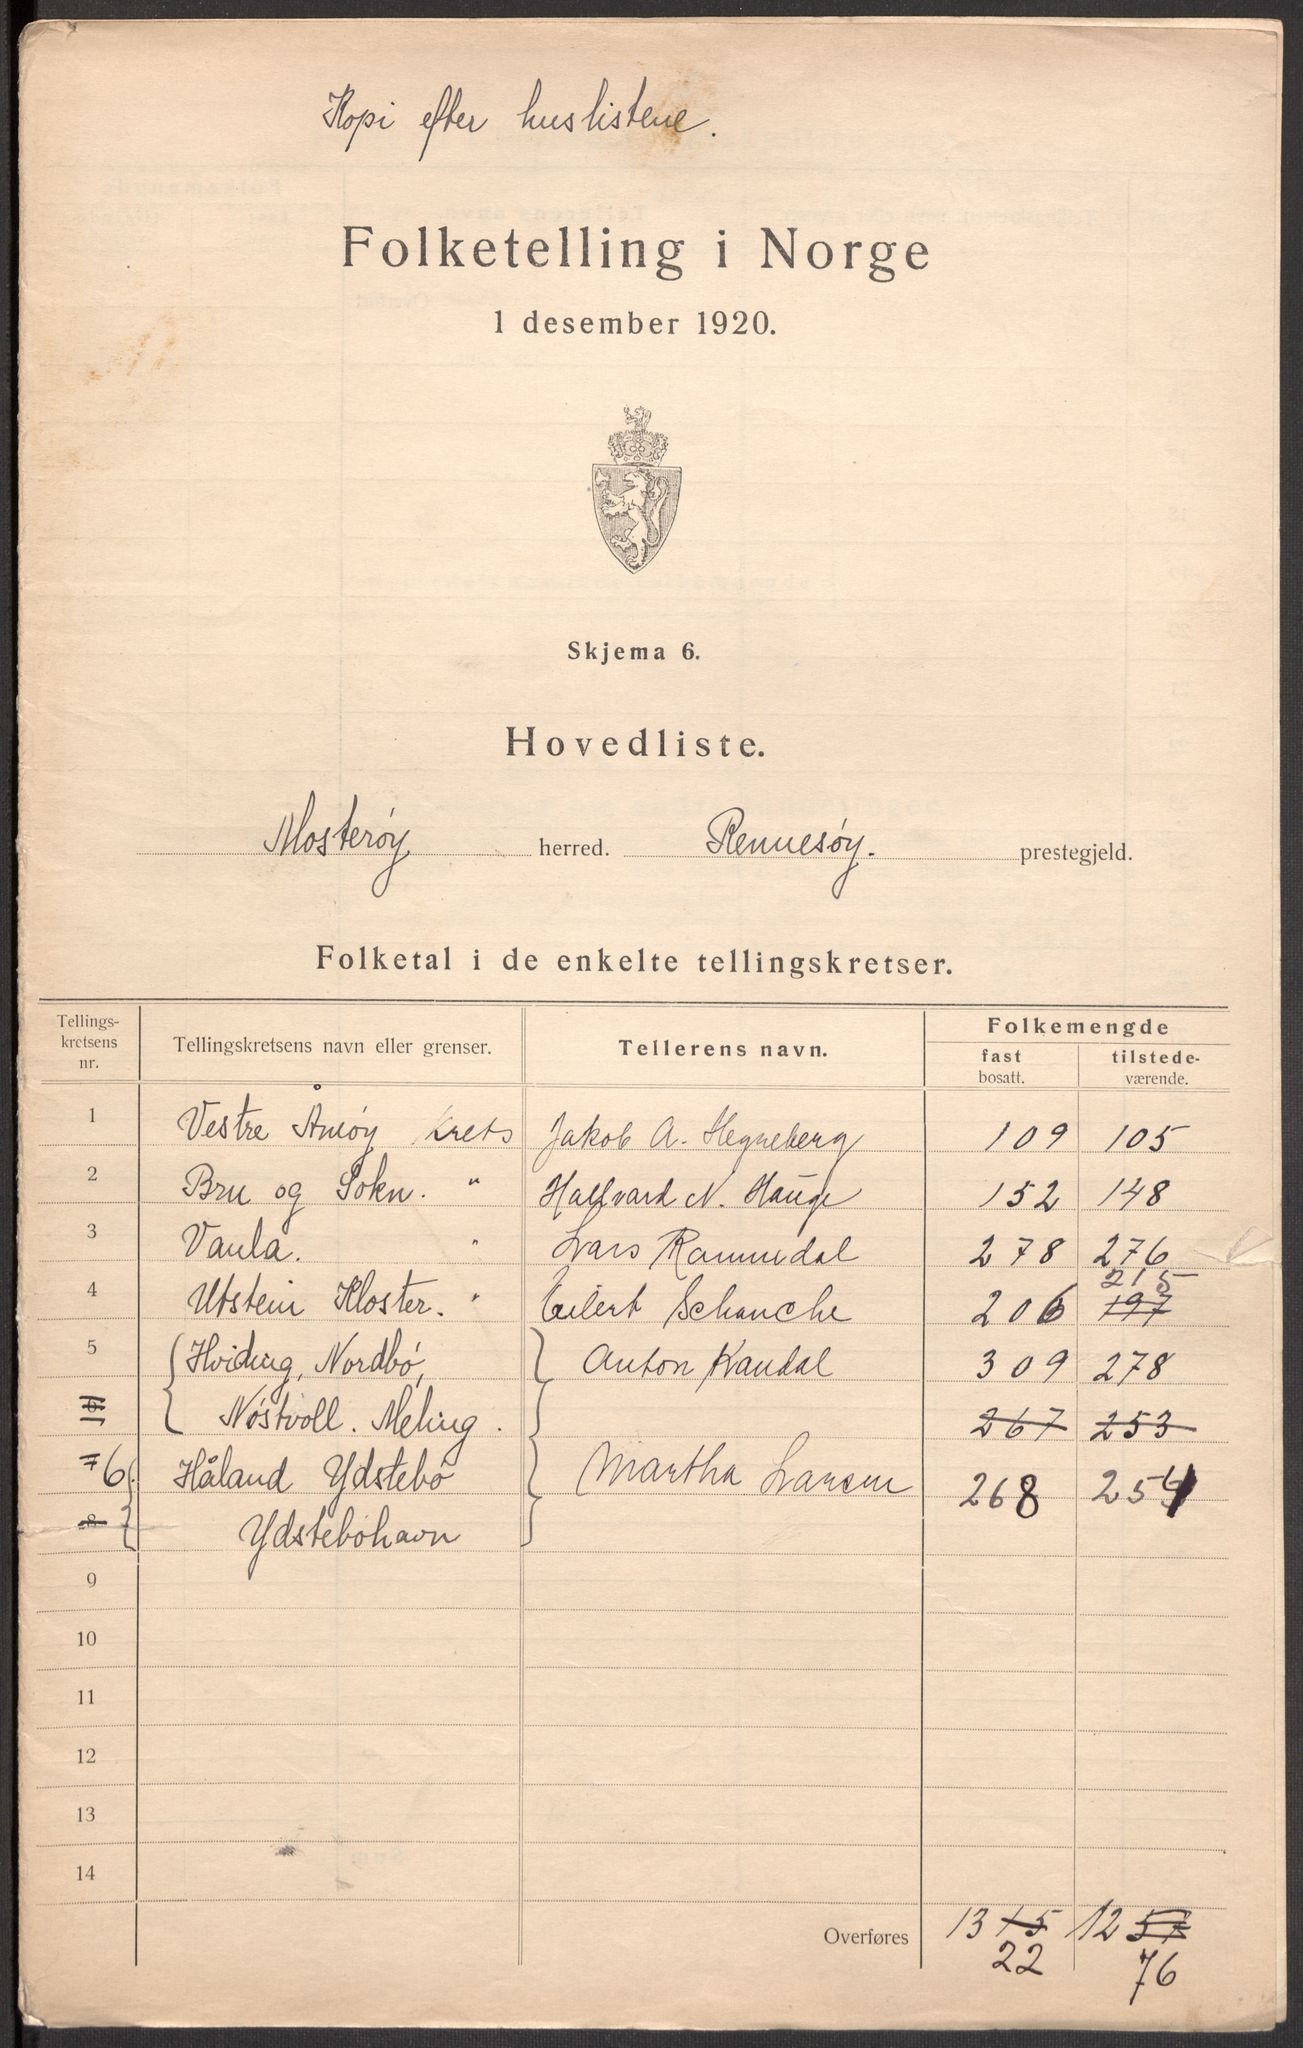 Kopi efter huslistene.
Folketelling i Norge
1 desember 1920.
Skjema 6.
Hovedliste.
Mosterøy herred. Rennesøy. prestegjeld.
Folketal i de enkelte tellingskretser.
Tellings-kretsens nr. Tellingskretsens navn eller grenser. Tellerens navn. Folkemengde
fast bosatt. tilstede-værende.
1 Vestre Åmøy Krets Jakob A. Hegneberg 109 105
2 Bru og Sokn. " Hallvard N. Hauge 152 148
3 Vaula. " Lars Ramndal 278 276
215
4 Utstein Kloster. " Eilert Schanche 206 197
5 Hviding, Nordbø, Anton Kandal 309 278
6 Nøstvoll. Meling. 267 253
7 6 Håland Ydstebø Martha Larsen 268 254
8 7 Ydstebøhavn
9
10
11
12
13
14
Overføres 1315 1257
22 76